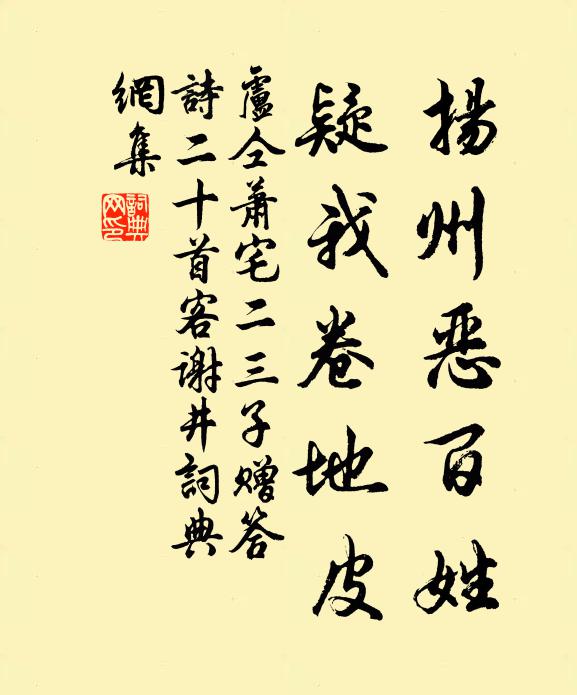 揚州惡百姓
疑我卷地皮
盧仝萧宅二三子赠答
詩二十首客谢井詞典
網集
詞典
网印